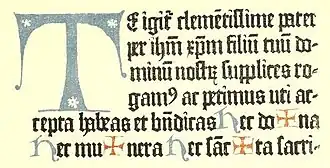 Te igit᷑ clemētissime pater
per ihm̄ xp̄m filiū tuū do-
minū nostꝝ supplices ro-
gamꝰ ac petimus uti ac-
cepta habeas et bn̄dicas hec do✠na
hec mu✠nera hec sāc✠ta sacri-